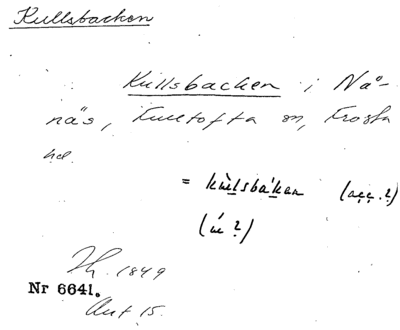 Kullsbacken
Kullsbacken i Nå-
näs, Fulltofta sn, Frosta
hd.
= kùlsbákan (acc.?)
(ú ?)
Th. 1849
Nr 6641.
Ant 15.